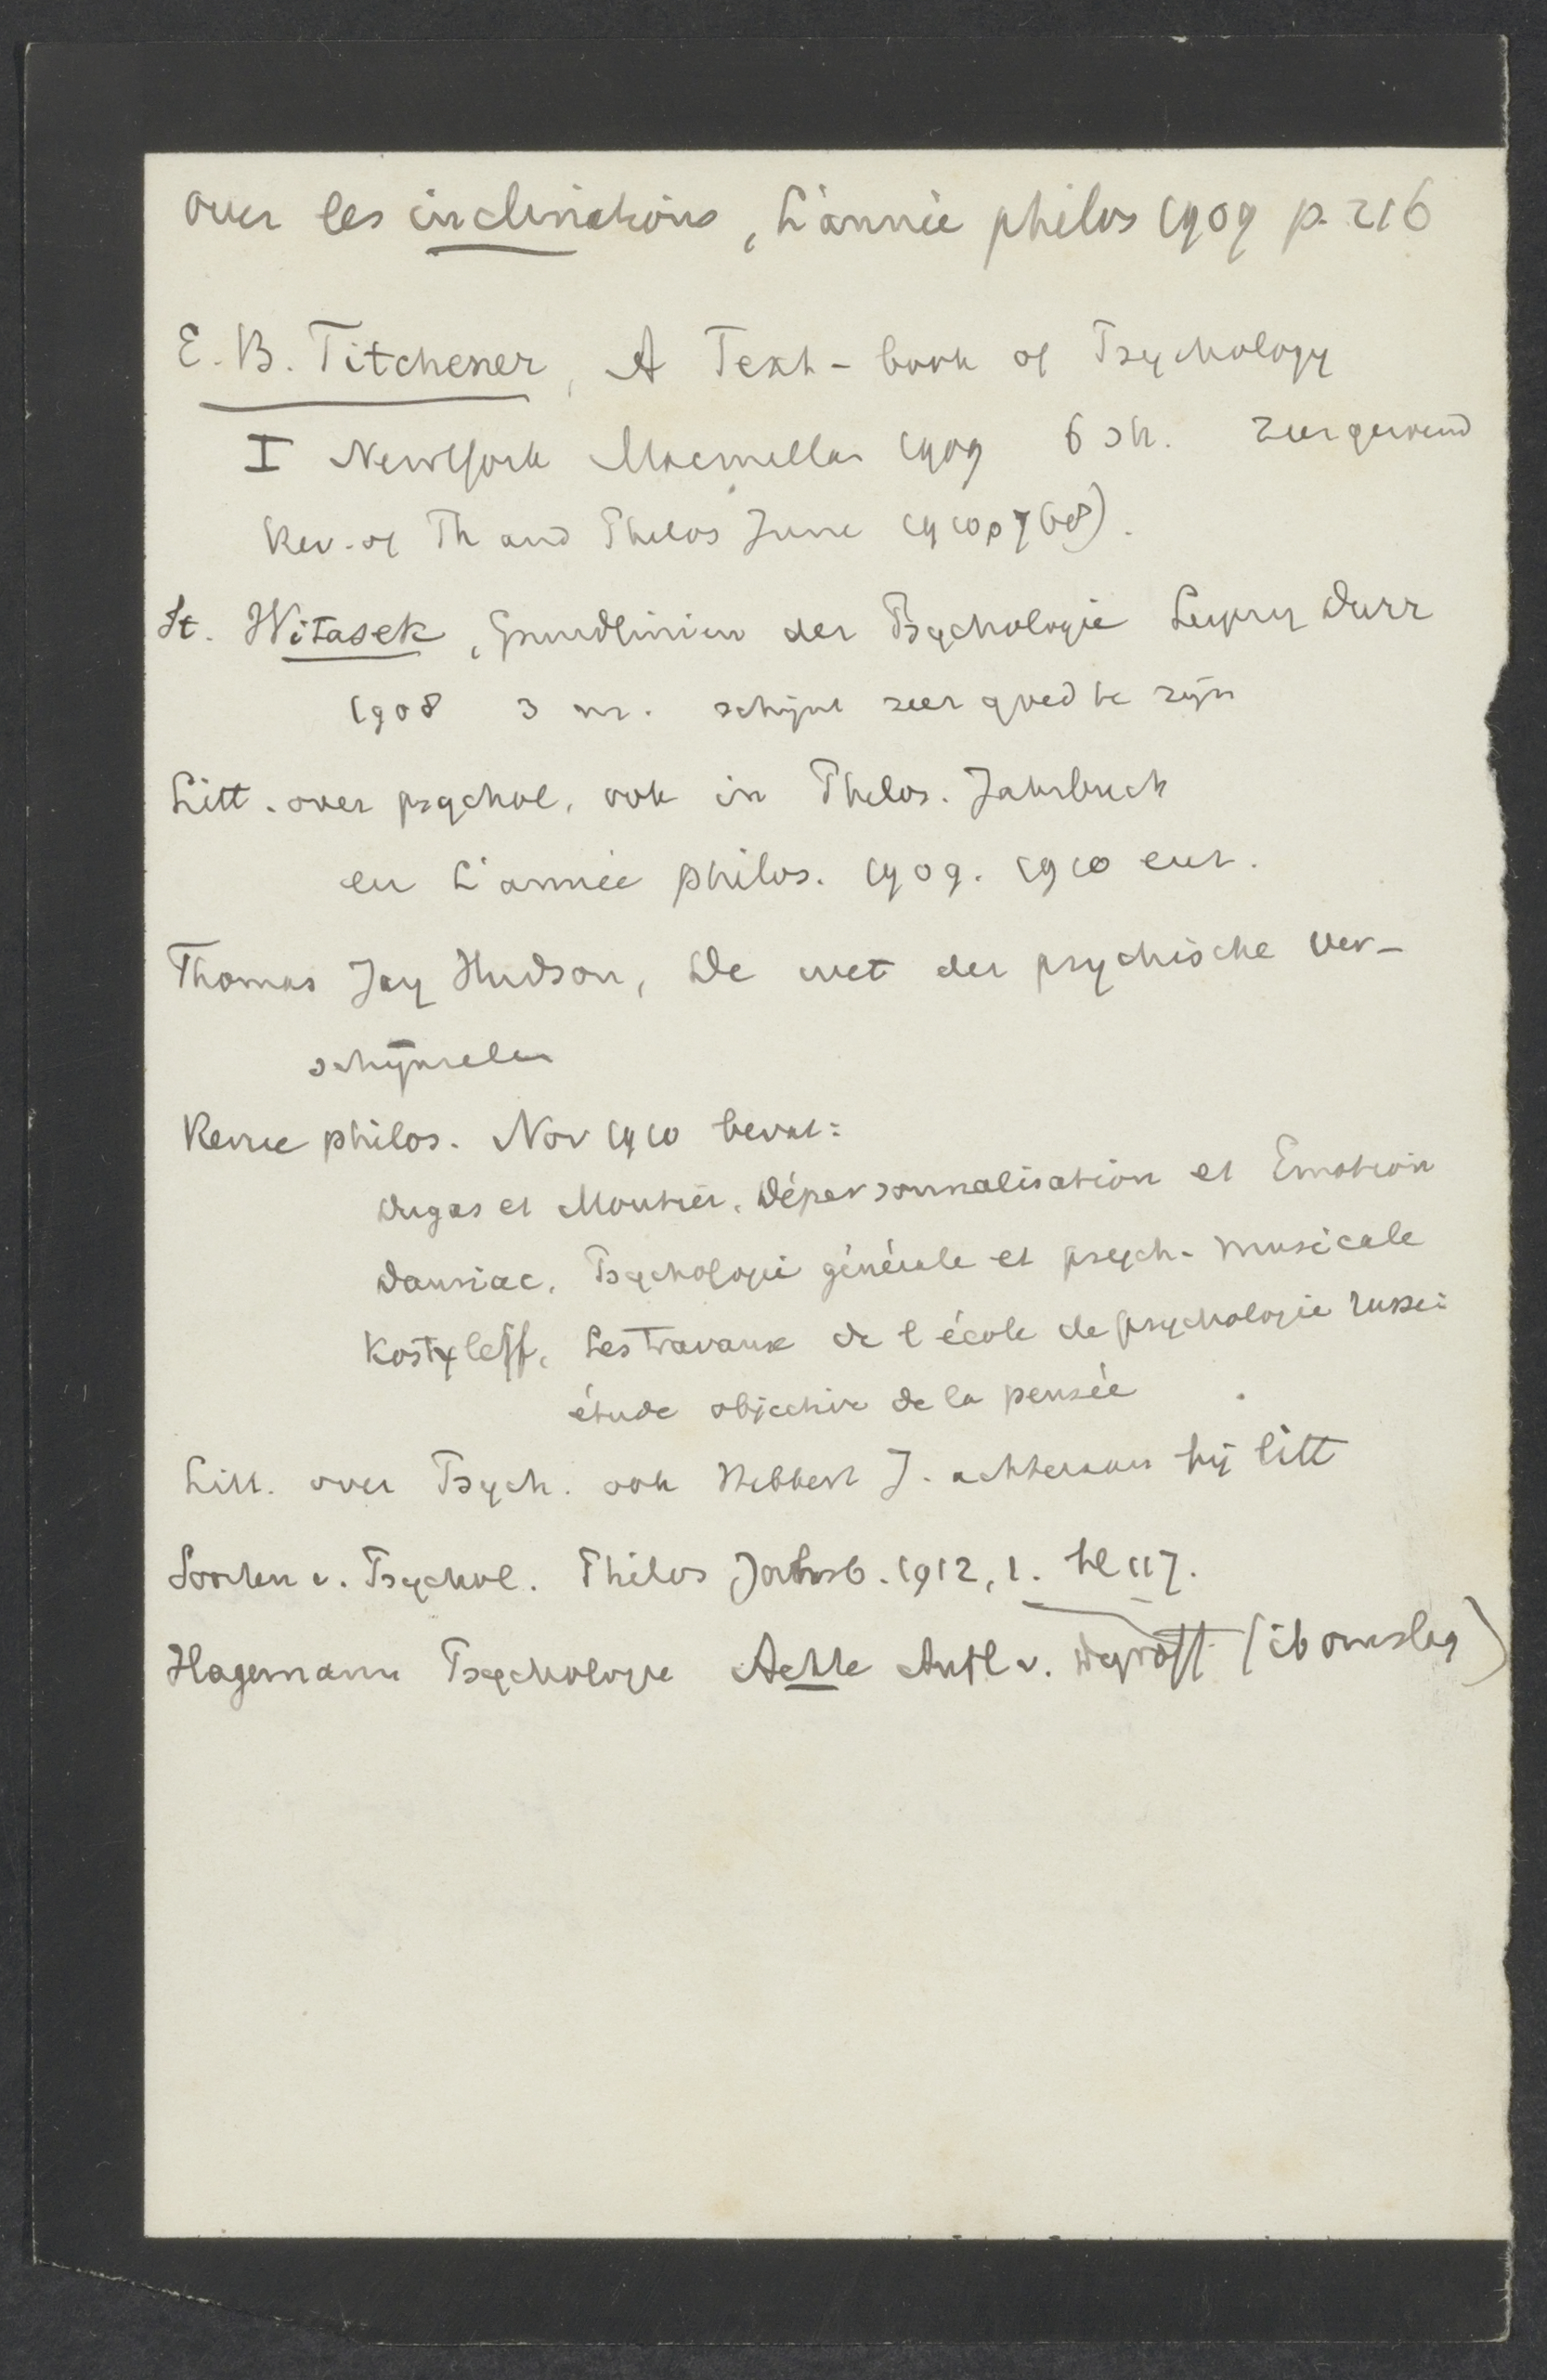 over les inclinations, L'année philos 1909 p. 216
E. B. Titchener, A Text-book of Psychology
I New York Macmillan 1909 6 sh. zeer geroemd
Rev. of Th and Philos June 1910 p 768).
St. Witasek, Grundlinien der Psychologie Leipzig Dürr
1908 3 m. schijnt zeer goed te zijn
Litt. over psychol. ook in Philos. Jahrbuch
en L'année philos. 1909. 1910 enz.
Thomas Jay Hudson, De wet der psychische ver-
schijnselen
Revue philos. Nov 1910 bevat:
Dugas et Moutier, Dépersonnalisation et Emotion
Dauriac, Psychologie générale et psych. musicale
Kostyleff, Les travaux de l'école de psychologie russe:
étude objective de la pensée
Litt. over Psych. ook Hibbert J. achteraan bij litt
Soorten v. Psychol. Philos Jahrb. 1912, 1. bl 117.
Hagemann Psychologie Achte Aufl v. Dyroff (ib omslag)